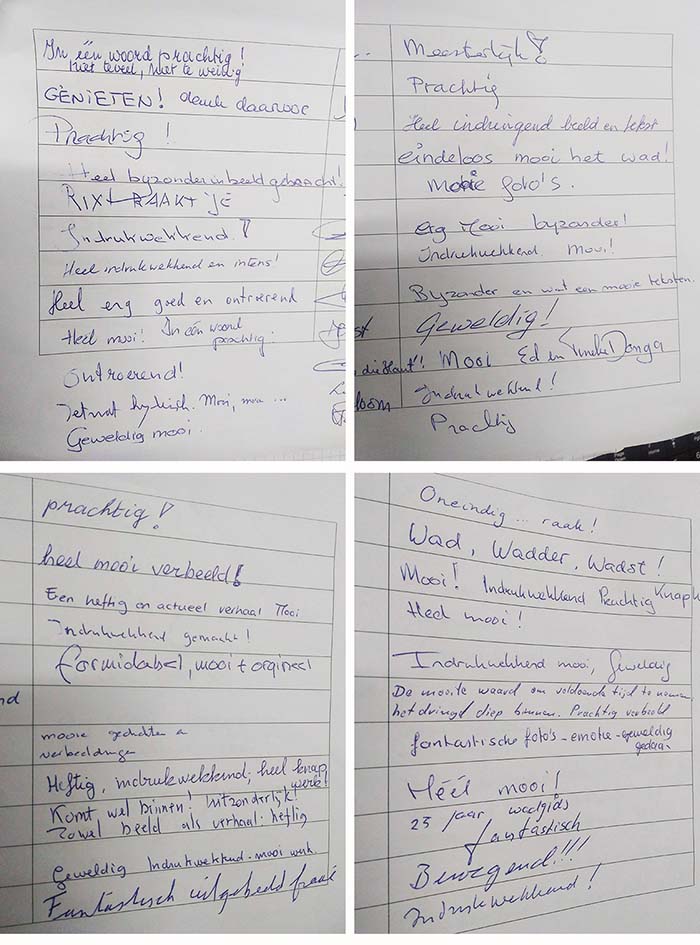 In één woord prachtig!
niet teveel, niet te weinig
GENIETEN! dank daarvoor
Prachtig!
Heel byzonder in beeld gebracht!
RIXT RAAKT JE
Indrukwekkend!
Heel indrukwekkend en intens!
Heel erg goed en ontroerend
Heel mooi! In één woord
prachtig.
Ontroerend!
Mooi, ...
Geweldig mooi.
Meesterlijk!
Prachtig
Heel indringend beeld en tekst
eindeloos mooi het wad!
Mooie foto's.
erg Mooi byzonder!
Indrukwekkend. Mooi!
Byzonder en wat een mooie teksten.
Geweldig!
Mooi Ed en Tineke Donga
Indrukwekkend!
Prachtig
prachtig!
heel mooi verbeeld!
Een heftig en actueel verhaal Mooi
Indrukwekkend gemaakt!
formidabel, mooi + orgineel
nd
mooie gedichten n
verbeeldingen
Heftig, indrukwekkend; heel knap
werk!
Komt wel binnen! Uitzonderlijk!
Zowel beeld als verhaal. heftig
Geweldig Indrukwekkend. mooi werk.
Fantastisch uitgebeeld fraai
Oneindig ... raak!
Wad, Wadder, Wadst!
Mooi! Indrukwekkend Prachtig Knap
Heel mooi!
Indrukwekkend mooi, Geweldig
De moeite waard om voldoende tijd te nemen,
het dringd diep binnen. Prachtig verbeeld
fantastische foto's - emotie - geweldig
gedaan
Héél mooi!
25 jaar wadgids
fantastisch
Bewegend!!!
Indrukwekkend!